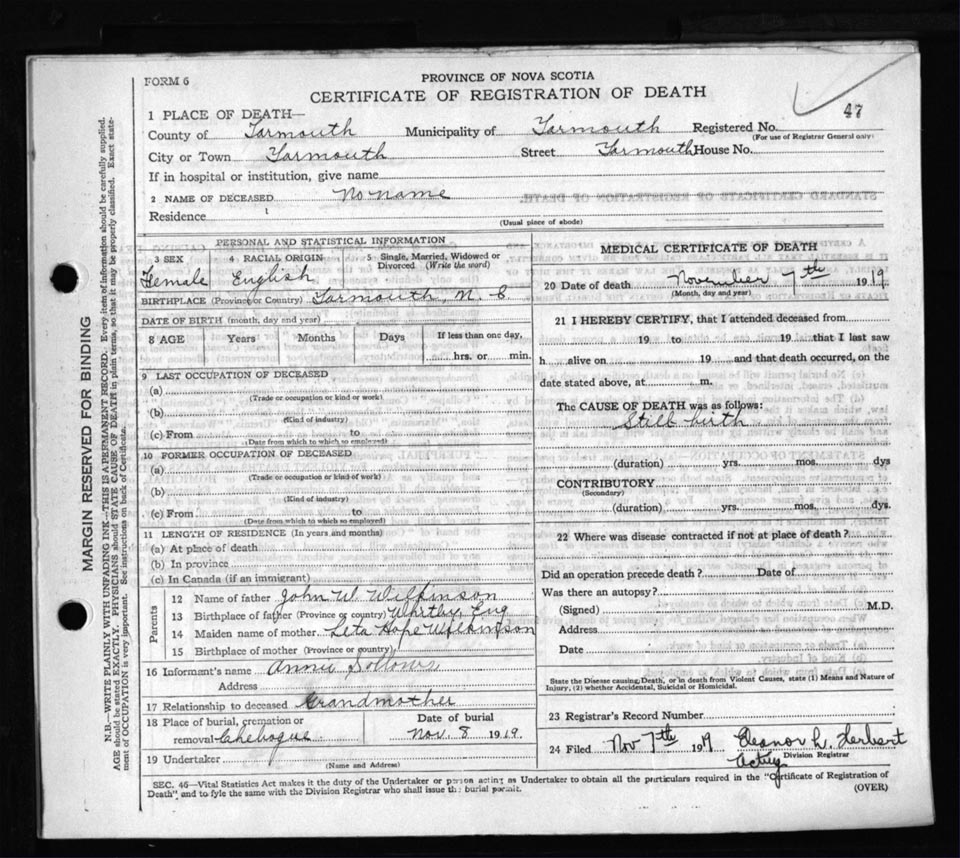 FORM 6
PROVINCE OF NOVA SCOTIA
CERTIFICATE OF REGISTRATION OF DEATH
47
1 PLACE OF DEATH—
County of Yarmouth Municipality of Yarmouth Registered No.
(For use of Registrar General only)
City or Town Yarmouth Street Yarmouth House No.
If in hospital or institution, give name
2 NAME OF DECEASED No name
Residence
(Usual place of abode)
MARGIN RESERVED FOR BINDING
N.B.—WRITE PLAINLY WITH UNFADING INK—THIS IS A PERMANENT RECORD. Every item of information should be carefully supplied.
AGE should be stated EXACTLY. PHYSICIANS should STATE CAUSE OF DEATH in plain terms, so that it may be properly classified. Exact state-
ment of OCCUPATION is very important. See instructions on back of Certificate.
PERSONAL AND STATISTICAL INFORMATION
3 SEX 4 RACIAL ORIGIN 5 Single, Married, Widowed or
Divorced (Write the word)
Female English
BIRTHPLACE (Province or Country) Yarmouth, N. S
DATE OF BIRTH (month, day and year)
8 AGE Years Months Days If less than one day,
hrs. or min.
9 LAST OCCUPATION OF DECEASED
(a)
(Trade or occupation or kind or work)
(b)
(Kind of industry)
(c) From to
(Date from which to which so employed)
10 FORMER OCCUPATION OF DECEASED
(a)
(Trade or occupation or kind of work)
(b)
(Kind of industry)
(c) From to
(Date from which to which so employed)
11 LENGTH OF RESIDENCE (In years and months)
(a) At place of death
(b) In province
(c) In Canada (if an immigrant)
Parents
12 Name of father John W. Wilkinson
13 Birthplace of father (Province or country) Whitby, Eng
14 Maiden name of mother Leta Hope Wilkinson
15 Birthplace of mother (Province or country)
16 Informant's name Annie Sollows
Address
17 Relationship to deceased Grandmother
18 Place of burial, cremation or Date of burial
removal Chebogue Nov. 8 1919.
19 Undertaker
(Name and Address)
MEDICAL CERTIFICATE OF DEATH
20 Date of death November 7th 1919.
(Month, day and year)
21 I HEREBY CERTIFY, that I attended deceased from
19 to 19 that I last saw
h alive on 19 and that death occurred, on the
date stated above, at m.
The CAUSE OF DEATH was as follows:
Still birth
(duration) yrs. mos. dys
CONTRIBUTORY
(Secondary)
(duration) yrs. mos. dys.
22 Where was disease contracted if not at place of death?
Did an operation precede death? Date of
Was there an autopsy?
(Signed) M.D.
Address
Date
State the Disease causing Death, or in death from Violent Causes, state (1) Means and Nature of
Injury, (2) whether Accidental, Suicidal or Homicidal.
23 Registrar's Record Number
24 Filed Nov 7th 1919 Eleanor L. Herbert
Acting Division Registrar
SEC. 46—Vital Statistics Act makes it the duty of the Undertaker or person acting as Undertaker to obtain all the particulars required in the "Certificate of Registration of
Death" and to fyle the same with the Division Registrar who shall issue the burial permit. (OVER)